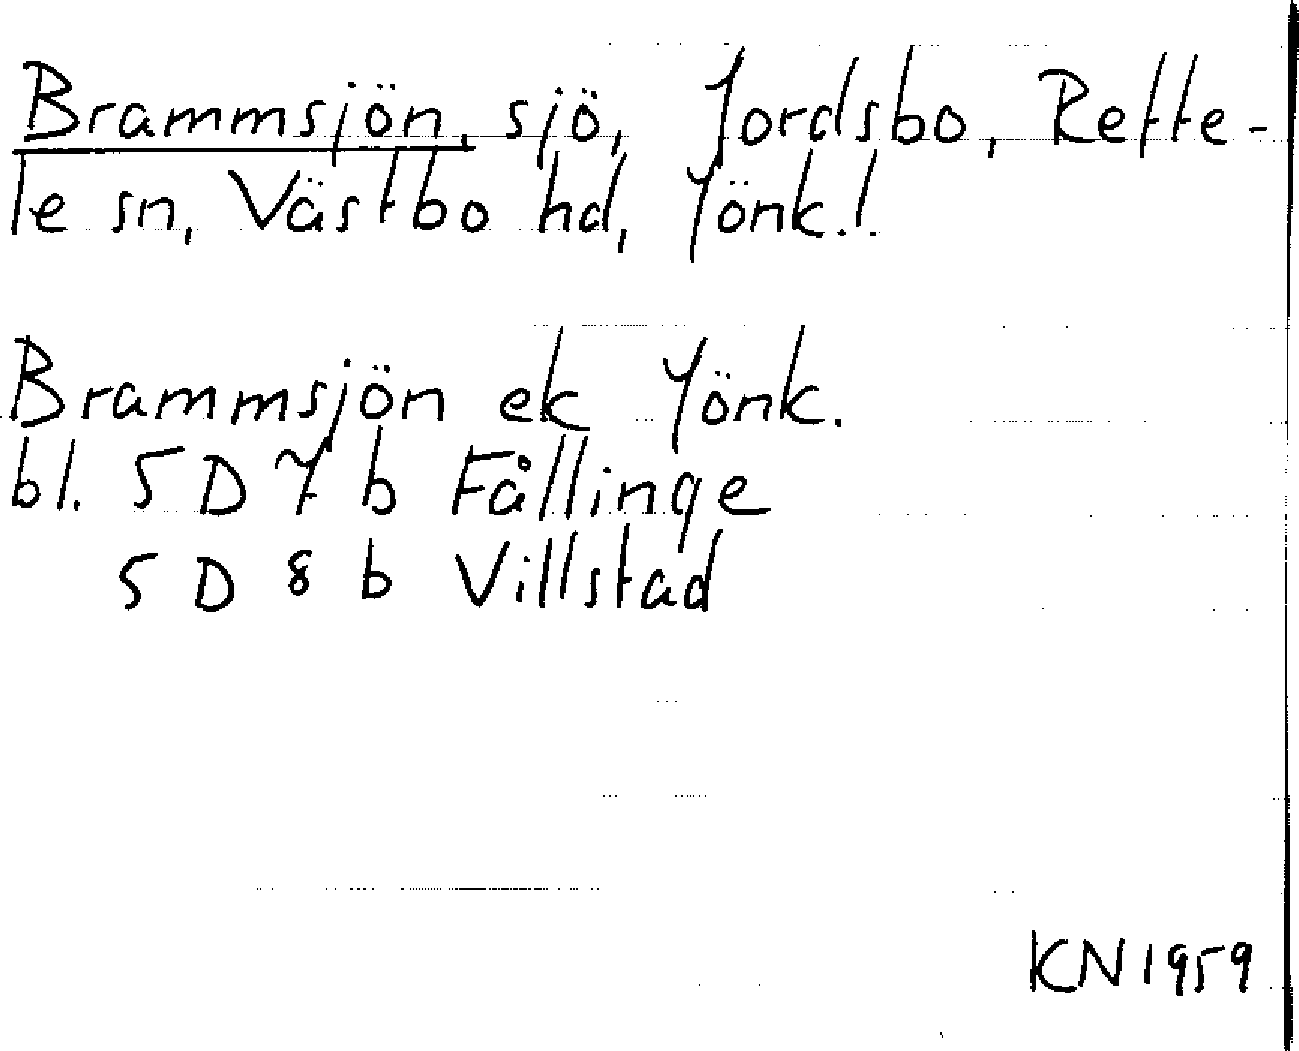 Brammsjön, sjö, Jordsbo, Refte-
le sn, Västbo hd, Jönk.l.
Brammsjön ek Jönk.
bl. 5 D 7 b Fållinge
5 D 8 b Villstad
KN 1959